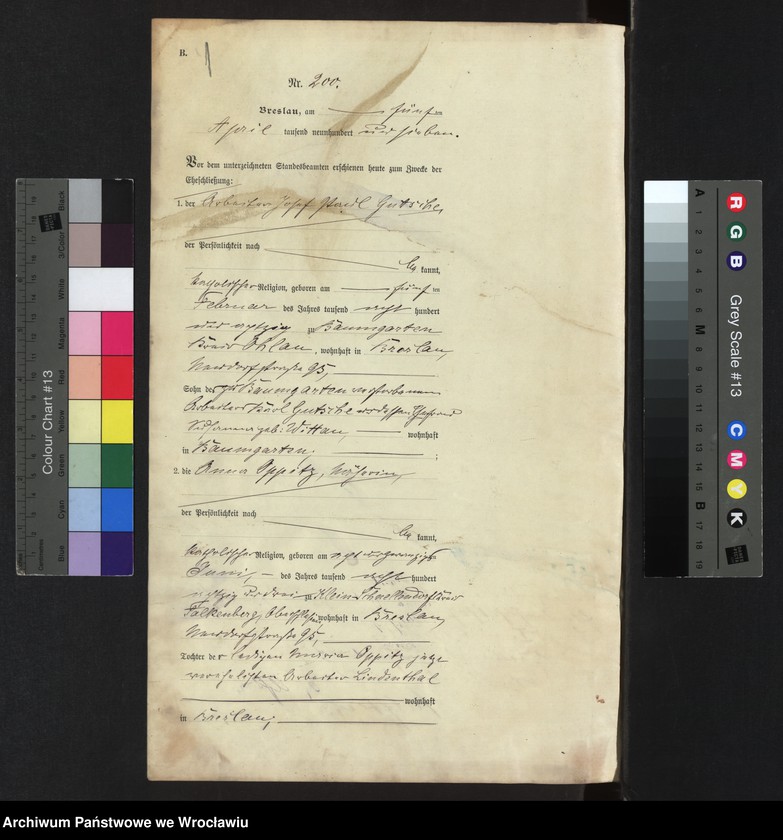 B.
1
Nr. 200.
Breslau, am fünften
April tausend neunhundert und sieben.
Vor dem unterzeichneten Standesbeamten erschienen heute zum Zwecke der
Eheschließung:
1. der Arbeiter Josef Paul Gutsche,
der Persönlichkeit nach
be kannt,
katholischer Religion, geboren am fünften
Februar des Jahres tausend acht hundert
und achtzig zu Baumgarten
Kreis Ohlau, wohnhaft in Breslau,
Neudorfstraße 95,
Sohn des zu Baumgarten verstorbenen
Arbeiters Karl Gutsche und dessen Ehefrau
Susanna geb. Wittau, wohnhaft
in Baumgarten. ;
2. die Anna Oppitz, Näherin,
der Persönlichkeit nach
be kannt,
katholischer Religion, geboren am achtundzwanzigsten
Juni, des Jahres tausend acht hundert
achtzig und drei zu Klein Kreis
Falkenberg, Oberschlesien wohnhaft in Breslau,
Neudorfstraße 95,
Tochter der ledigen Maria Oppitz jetzt
verehelichten Arbeiter Lindenthal
wohnhaft
in Breslau,
Colour Chart #13
Black
3/Color
White
Magenta
Red
Yellow
Green
Cyan
Blue
Centimetres
Grey Scale #13
R
G
B
C
M
Y
K
A 1 2 3 4 5 6 M 8 9 10 11 12 13 14 15 B 17 18 19
Archiwum Państwowe we Wrocławiu